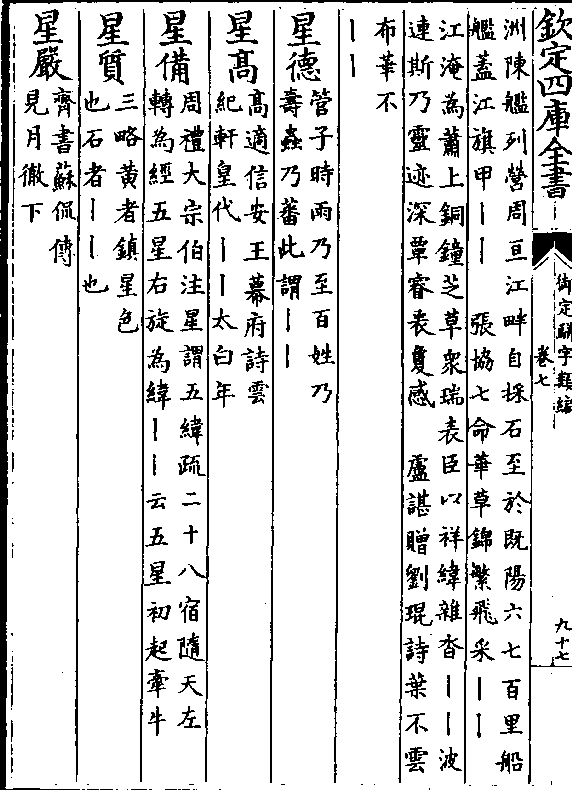 欽定四庫全書
御定駢字類編
卷七
九十七
洲陳艦列營周亘江畔自採石至於既陽六七百里船
艦蓋江旗甲丨丨　張協七命華草錦繁飛采丨丨
江淹為蕭上銅鐘芝草衆瑞表臣以祥緯雜沓丨丨波
連斯乃靈迹深覃睿表敻感　盧諶贈劉琨詩葉不雲
布華不
丨丨
星德
管子時雨乃至百姓乃
壽蟲乃蕃此謂丨丨
星高
高適信安王幕府詩雲
紀軒皇代丨丨太白年
星備
周禮大宗伯注星謂五緯疏二十八宿隨天左
轉為經五星右旋為緯丨丨云五星初起牽牛
星質
三略黄者鎮星色
也石者丨丨也
星嚴
齊書蘇侃傳
見月徹下